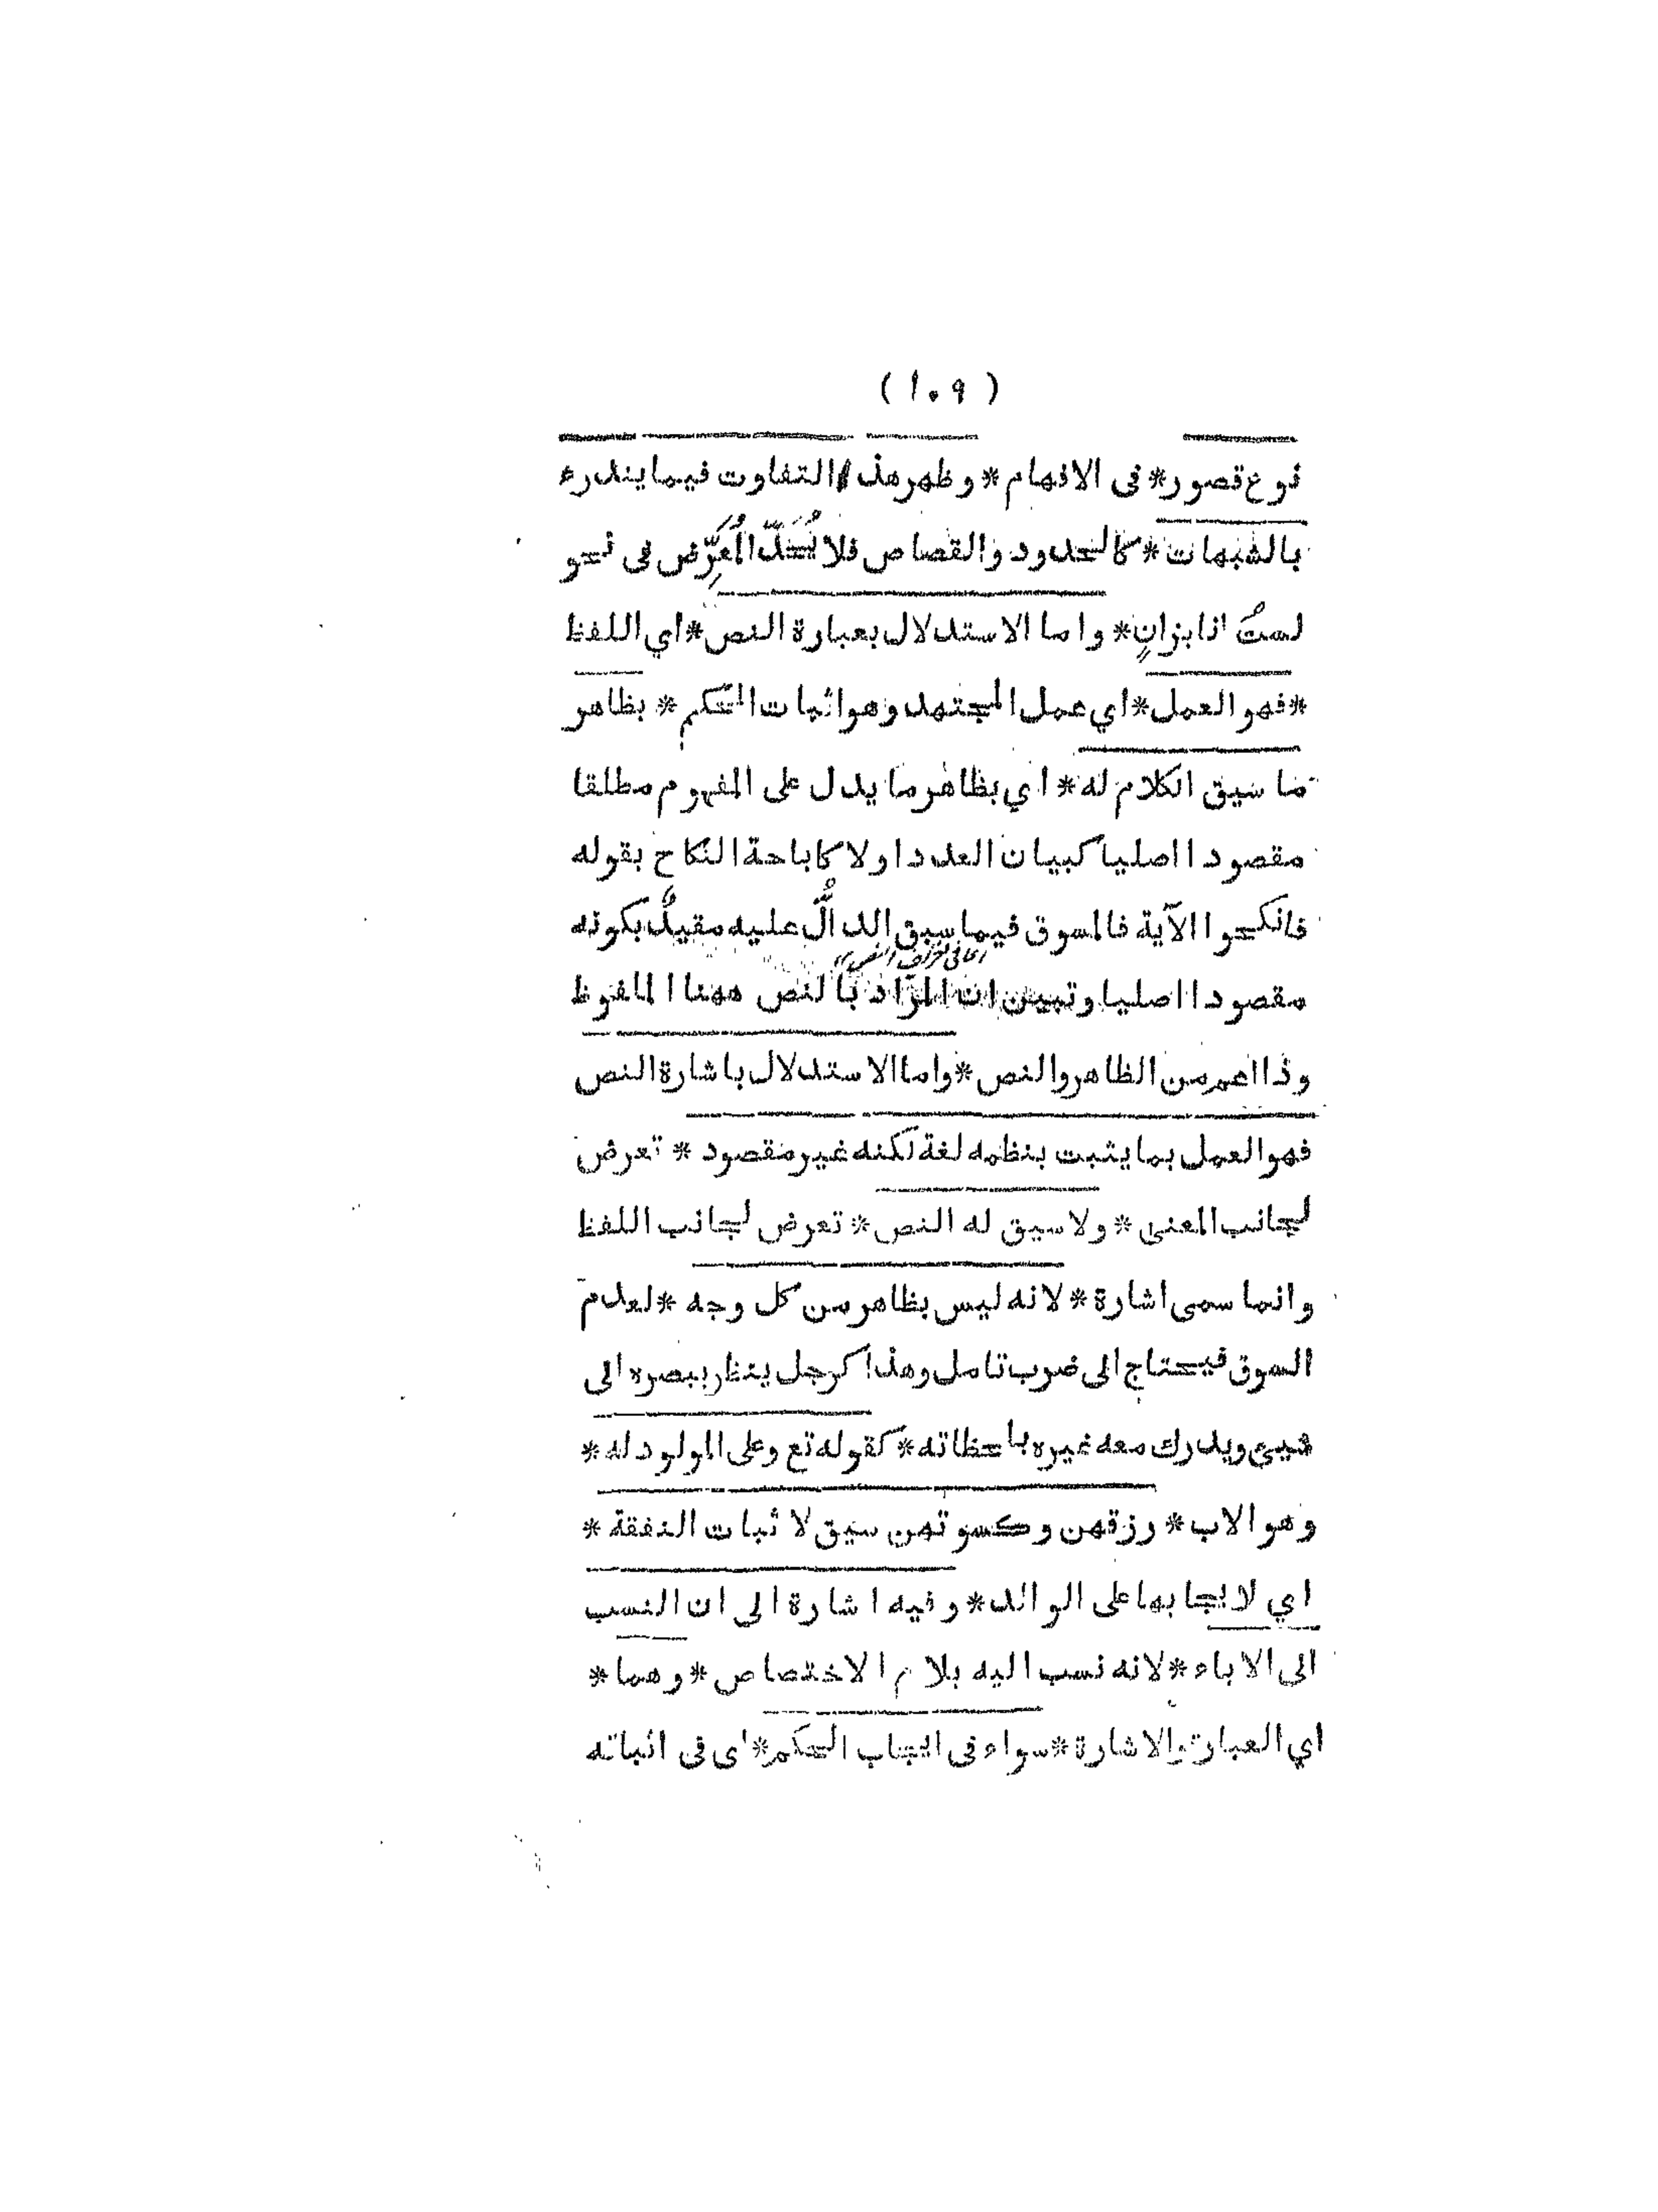 ( ١٠٩ )
نوع قصور* فى الافهام* وظهر هذا التفاوت فيما يندرء
بالشبهات* كالحدود والقصاص فلا يُحَدّ المُعَرِّض فى نحو
لستُ انا بزانٍ* واما الاستدلال بعبارة النص* اي اللفظ
*فهو العمل* اي عمل المجتهد وهو اثبات الحكم* بظاهر
ما سيق الكلام له* اي بظاهر ما يدل على المفهوم مطلقا
مقصودا اصليا كبيان العدد اولا كاباحة النكاح بقوله
فانكحوا الآية فالمسوق فيما سبق الدالُّ عليه مقيدٌ بكونه
مقصودا اصليا وتبين ان المراد بالنص ههنا الملفوظ
وذا اعم من الظاهر والنص* واما الاستدلال باشارة النص
فهو العمل بما يثبت بنظمه لغة لكنه غير مقصود* تعرض
لجانب المعنى* ولا سيق له النص* تعرض لجانب اللفظ
وانما سمى اشارة* لانه ليس بظاهر من كل وجه* لعدم
السوق فيحتاج الى ضرب تامل وهذا كرجل ينظر ببصره الى
شيئ ويدرك معه غيره بلحظاته* كقوله تع وعلى المولود له*
وهو الاب* رزقهن وكسوتهن سيق لاثبات النفقة*
اي لايجابها على الوالد* وفيه اشارة الى ان النسب
الى الاباء* لانه نسب اليه بلام الاختصاص* وهما*
اي العبارة والاشارة* سواء فى ايجاب الحكم* اى فى اثباته